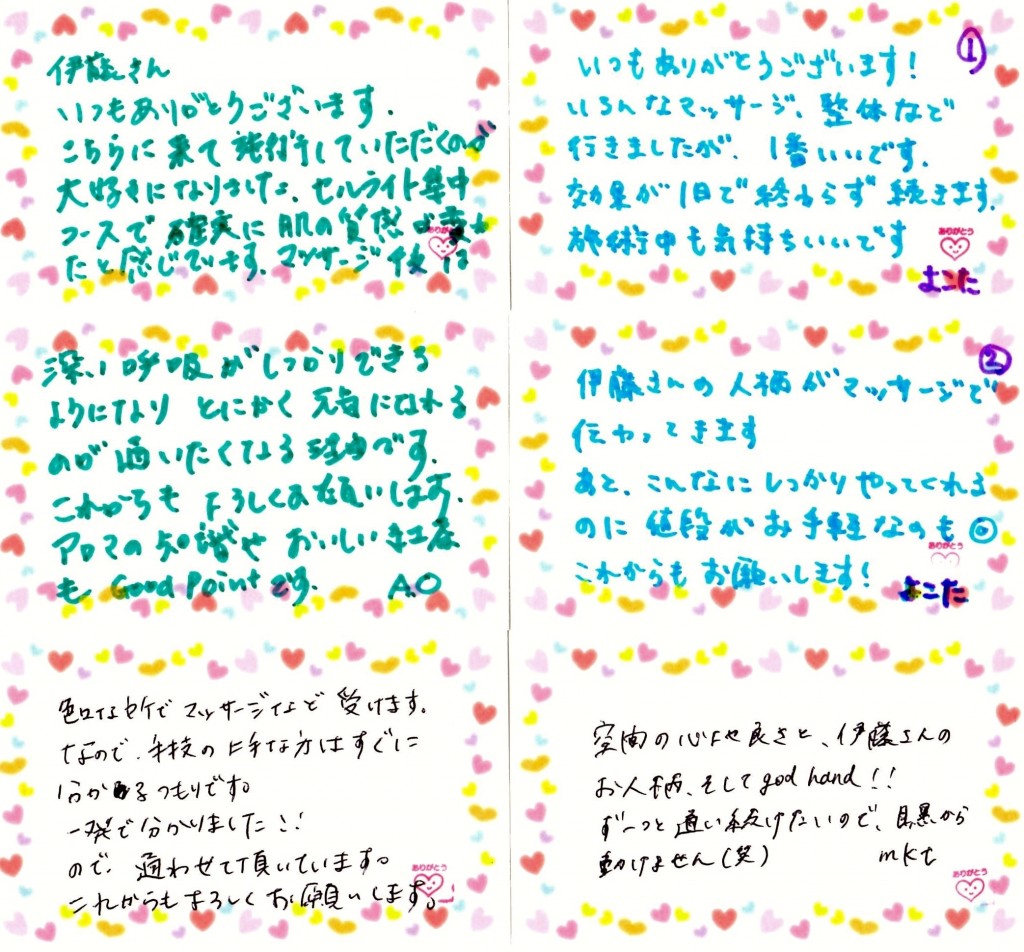 伊藤さん
いつもありがとうございます.
こちらに来て施術していただくのが
大好きになりました。セルライト集中
コースで確実に肌の質感が変わ
たと感じています。マッサージ後は
ありがとう
深い呼吸がしっかりできる
ようになり とにかく 元気になれる
のが通いたくなる理由です.
これからも よろしくお願いします.
アロマの知識や おいしい紅茶
も Good Pointです. A.O
色んな所でマッサージなど 受けます。
なので、手技の上手な方はすぐに
分かるつもりです。
一発で分かりました!!
ので、通わせて頂いています。
これからもよろしくお願いします。
ありがとう
①
いつもありがとうございます!
いろんなマッサージ、整体など
行きましたが、1番いいです.
効果が1日で終わらず 続きます.
施術中も気持ちいいです
ありがとう
よこた
②
伊藤さんの人柄がマッサージで
伝わってきます
あと、こんなにしっかりやってくれる
のに値段がお手軽なのも◎
ありがとう
これからもお願いします!
よこた
空間の心地良さと、伊藤さんの
お人柄、そして god hand!!
ず〜っと通い続けたいので、目黒から
動けません(笑) mkt
ありがとう